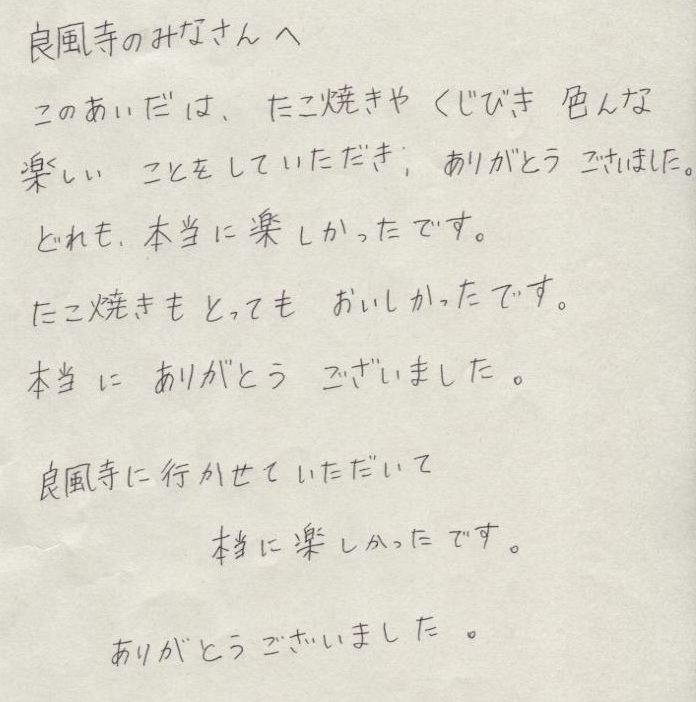 良風寺のみなさんへ
このあいだは、たこ焼きや くじびき 色んな
楽しい ことをしていただき、ありがとう ございました。
どれも、本当に楽しかったです。
たこ焼きもとっても おいしかったです。
本当に ありがとう ございました。
良風寺に行かせていただいて
本当に楽しかったです。
ありがとうございました。